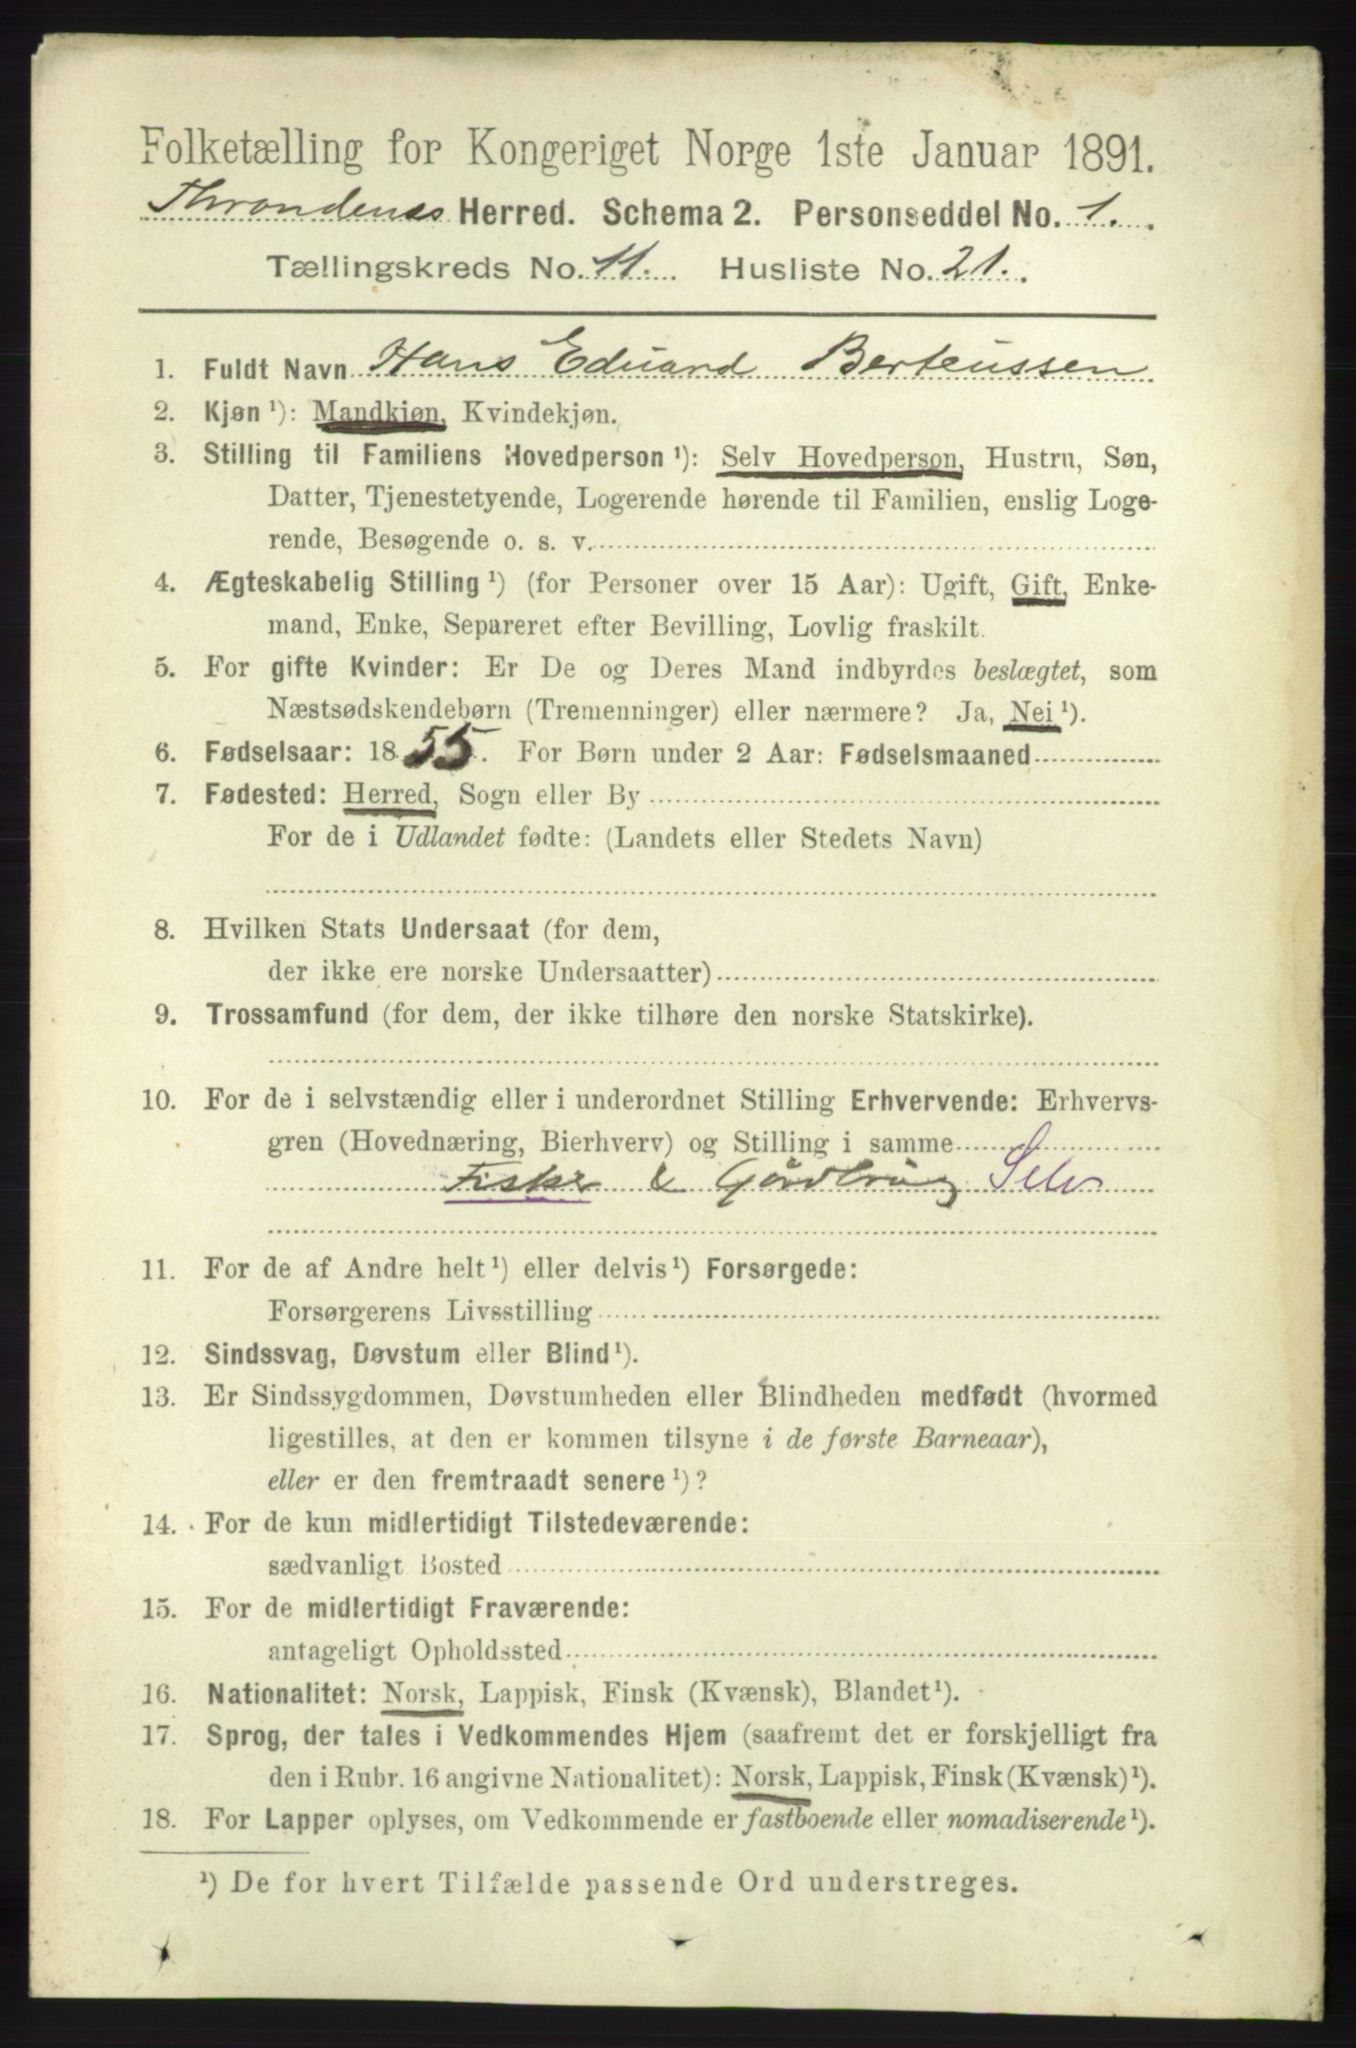 Folketælling for Kongeriget Norge 1ste Januar 1891.
Throndenæs Herred. Schema 2. Personseddel No. 1.
Tællingskreds No. 11. Husliste No. 21.
1. Fuldt Navn Hans Eduard Berteussen
2. Kjøn ¹): Mandkjøn, Kvindekjøn.
3. Stilling til Familiens Hovedperson ¹): Selv Hovedperson, Hustru, Søn,
Datter, Tjenestetyende, Logerende hørende til Familien, enslig Loge-
rende, Besøgende o. s. v.
4. Ægteskabelig Stilling ¹) (for Personer over 15 Aar): Ugift, Gift, Enke-
mand, Enke, Separeret efter Bevilling, Lovlig fraskilt.
5. For gifte Kvinder: Er De og Deres Mand indbyrdes beslægtet, som
Næstsødskendebørn (Tremenninger) eller nærmere? Ja, Nei ¹).
6. Fødselsaar: 1855. For Børn under 2 Aar: Fødselsmaaned
7. Fødested: Herred, Sogn eller By
For de i Udlandet fødte: (Landets eller Stedets Navn)
8. Hvilken Stats Undersaat (for dem,
der ikke ere norske Undersaatter)
9. Trossamfund (for dem, der ikke tilhøre den norske Statskirke).
10. For de i selvstændig eller i underordnet Stilling Erhvervende: Erhvervs-
gren (Hovednæring, Bierhverv) og Stilling i samme
Fisker & Gårdbrug Selv
11. For de af Andre helt ¹) eller delvis ¹) Forsørgede:
Forsørgerens Livsstilling
12. Sindssvag, Døvstum eller Blind ¹).
13. Er Sindssygdommen, Døvstumheden eller Blindheden medfødt (hvormed
ligestilles, at den er kommen tilsyne i de første Barneaar),
eller er den fremtraadt senere ¹)?
14. For de kun midlertidigt Tilstedeværende:
sædvanligt Bosted
15. For de midlertidigt Fraværende:
antageligt Opholdssted
16. Nationalitet: Norsk, Lappisk, Finsk (Kvænsk), Blandet ¹).
17. Sprog, der tales i Vedkommendes Hjem (saafremt det er forskjelligt fra
den i Rubr. 16 angivne Nationalitet): Norsk, Lappisk, Finsk (Kvænsk) ¹).
18. For Lapper oplyses, om Vedkommende er fastboende eller nomadiserende ¹).
¹) De for hvert Tilfælde passende Ord understreges.